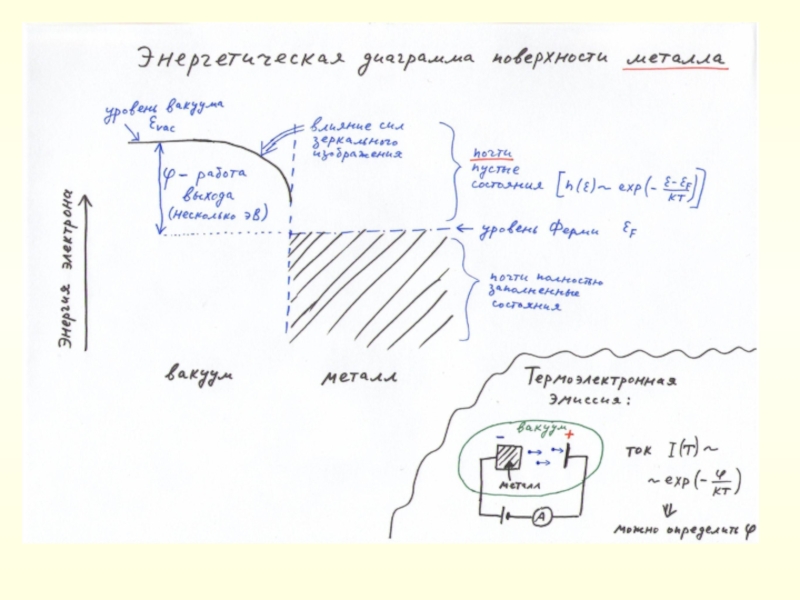 Энергетическая диаграмма поверхности металла
уровень вакуума
εvac
влияние сил
зеркального
изображения
φ – работа
выхода
(несколько эВ)
почти
пустые
состояния [n(ε) ~ exp(- ε-εF/кT)]
← уровень Ферми εF
почти полностью
заполненные
состояния
Энергия электрона
вакуум
металл
Термоэлектронная
эмиссия:
вакуум
- +
металл
A
ток I(T) ~
~ exp(- φ/кT)
⇓
можно определить φ